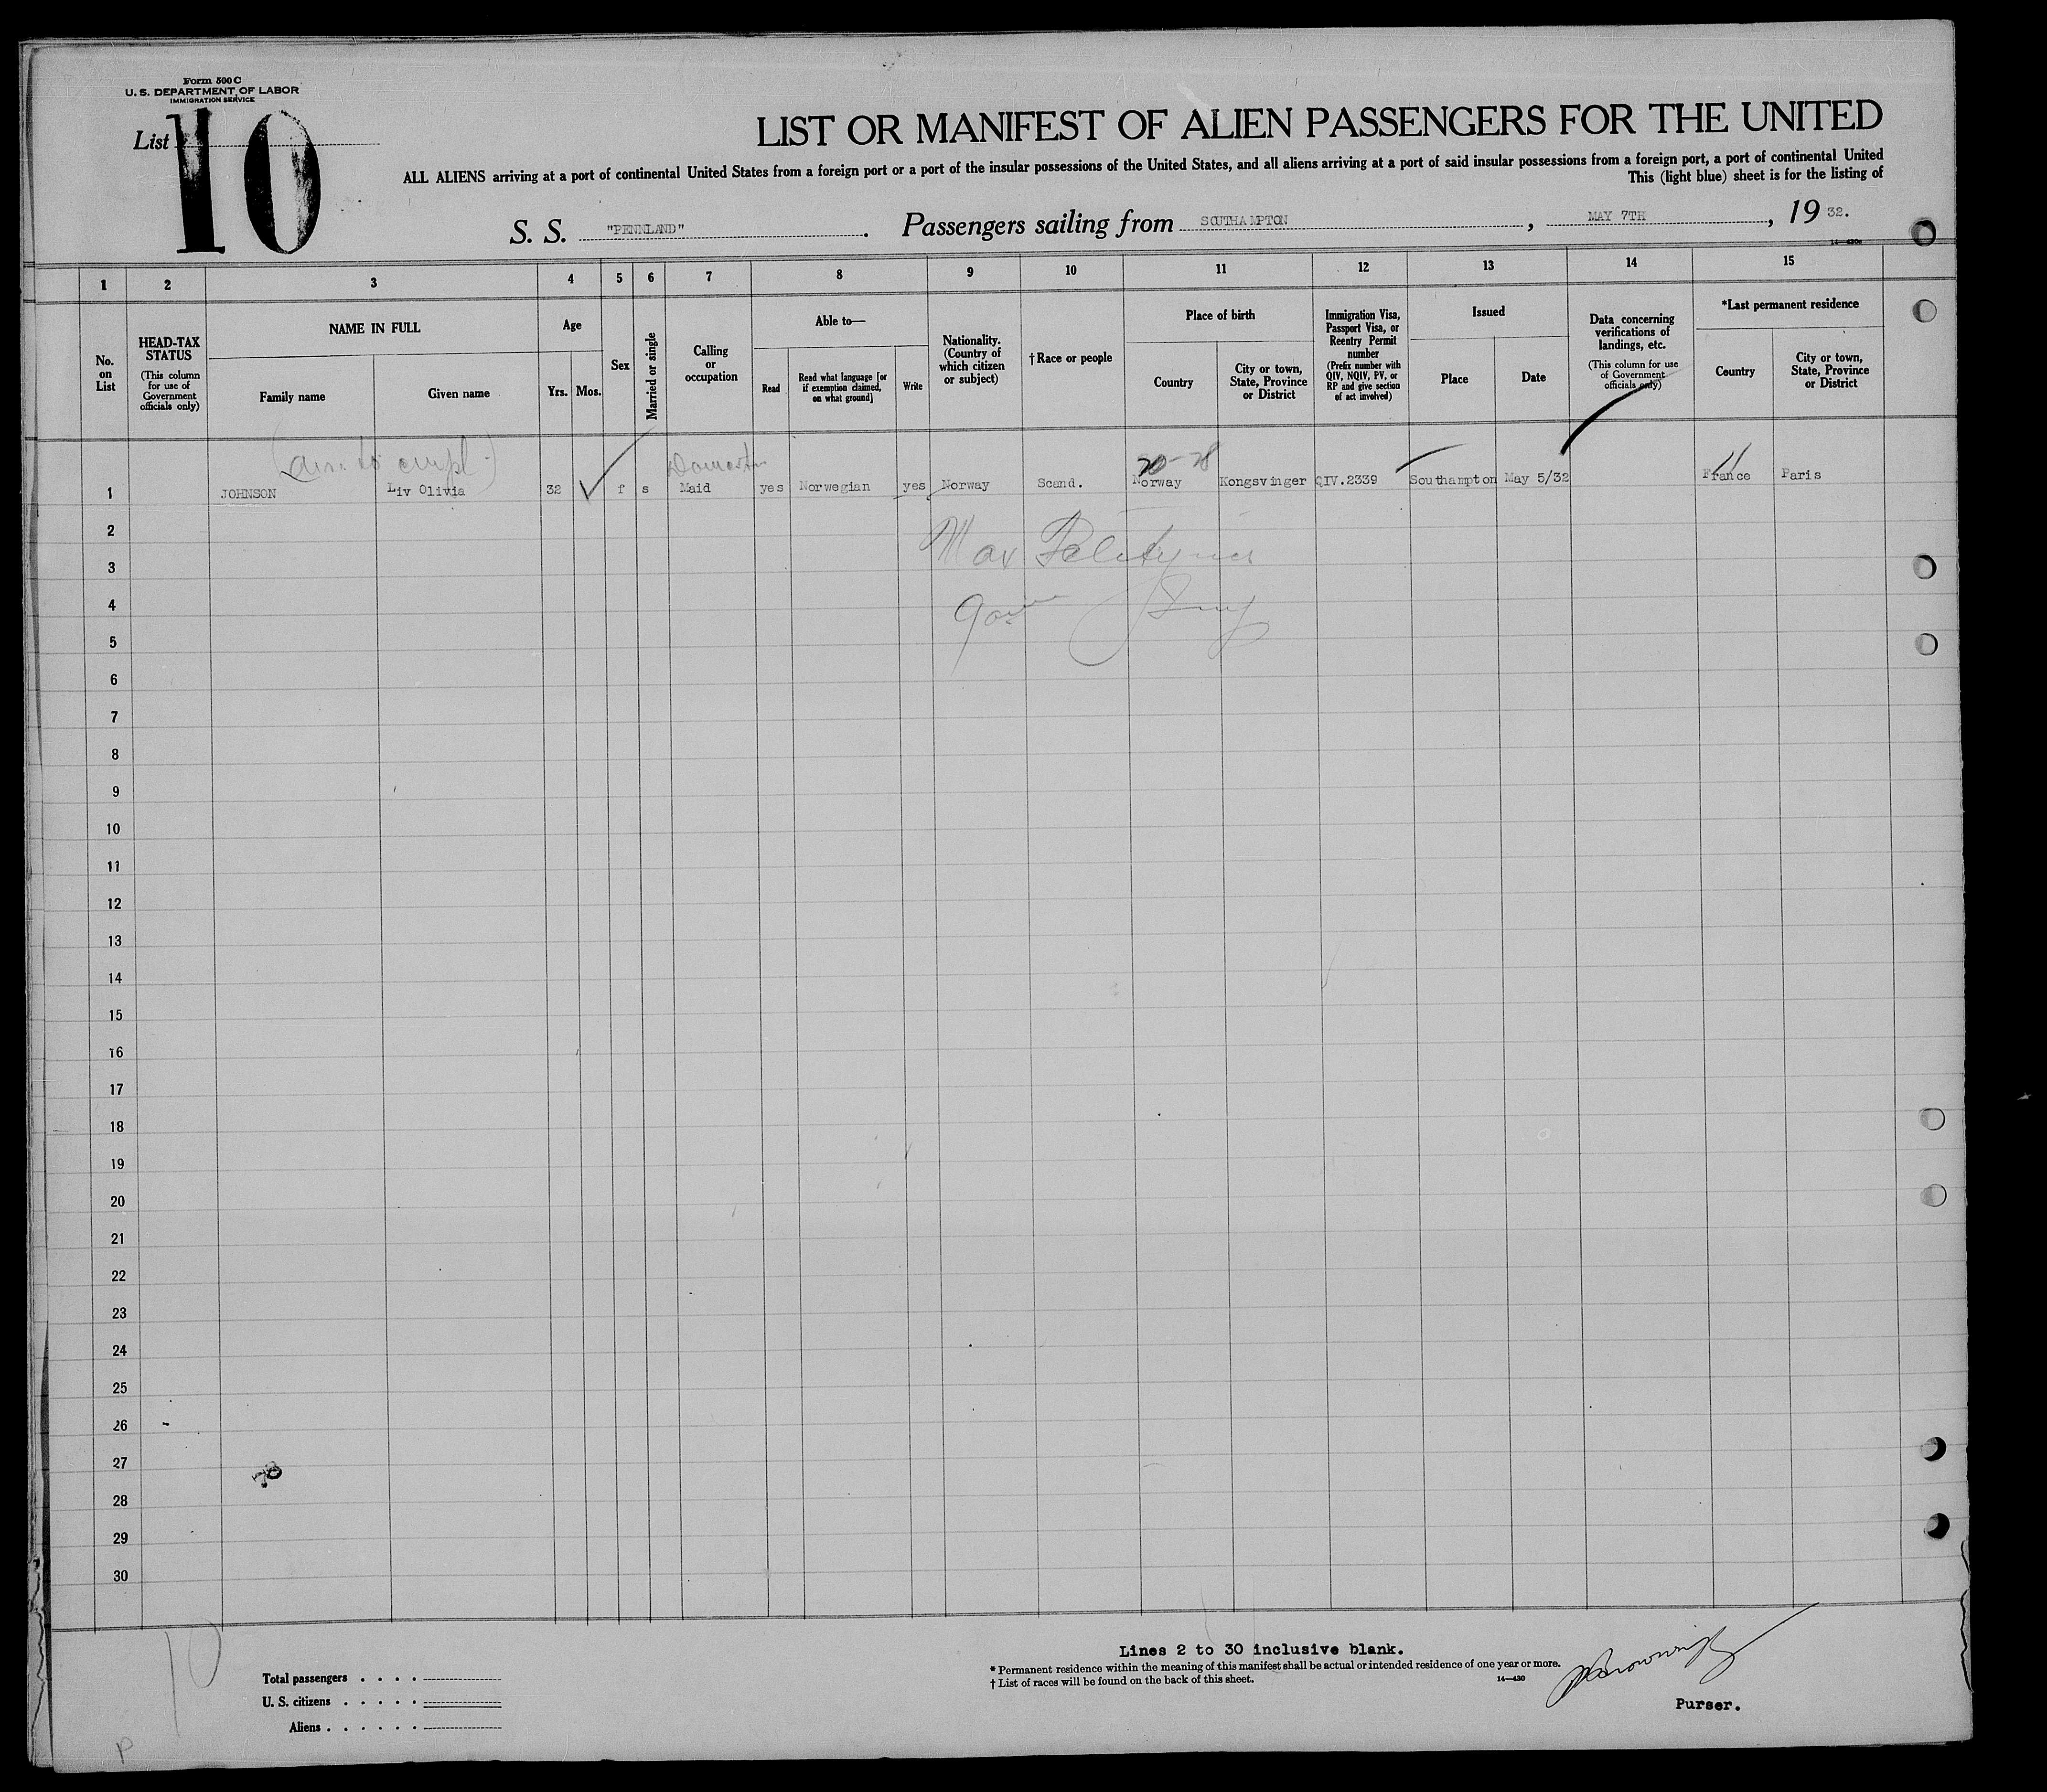 Form 500 C
U. S. DEPARTMENT OF LABOR
IMMIGRATION SERVICE
List 10
LIST OR MANIFEST OF ALIEN PASSENGERS FOR THE UNITED
ALL ALIENS arriving at a port of continental United States from a foreign port or a port of the insular possessions of the United States, and all aliens arriving at a port of said insular possessions from a foreign port, a port of continental United
This (light blue) sheet is for the listing of
S. S. "PENNLAND" . Passengers sailing from SOUTHAMPTON , MAY 7TH , 19 32.
1 2 3 4 5 6 7 8 9 10 11 12 13 14 15
No. on List
HEAD-TAX STATUS
(This column for use of Government officials only)
NAME IN FULL
Family name
Given name
Age
Yrs.
Mos.
Sex
Married or single
Calling or occupation
Able to—
Read
Read what language [or if exemption claimed, on what ground]
Write
Nationality. (Country of which citizen or subject)
†Race or people
Place of birth
Country
City or town, State, Province or District
Immigration Visa, Passport Visa, or Reentry Permit number
(Prefix number with QIV, NQIV, PV, or RP and give section of act involved)
Issued
Place
Date
Data concerning verifications of landings, etc.
(This column for use of Government officials only)
*Last permanent residence
Country
City or town, State, Province or District
20-28
1 JOHNSON Liv Olivia 32 f s Maid yes Norwegian yes Norway Scand. Norway Kongsvinger QIV.2339 Southampton May 5/32 France Paris
2
Max
3
4
5
6
7
8
9
10
11
12
13
14
15
16
17
18
19
20
21
22
23
24
25
26
27
28
29
30
10
Lines 2 to 30 inclusive blank.
* Permanent residence within the meaning of this manifest shall be actual or intended residence of one year or more.
† List of races will be found on the back of this sheet.
14—430
Total passengers . . . .
U. S. citizens . . . . .
Aliens . . . . . .
Purser.
P